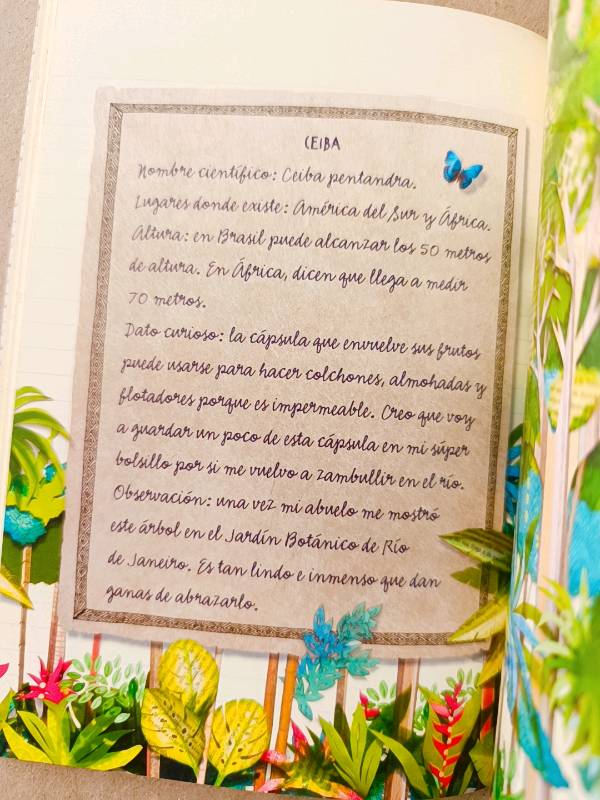 CEIBA
Nombre científico: Ceiba pentandra.
Lugares donde existe: América del Sur y África.
Altura: en Brasil puede alcanzar los 50 metros
de altura. En África, dicen que llega a medir
70 metros.
Dato curioso: la cápsula que envuelve sus frutos
puede usarse para hacer colchones, almohadas y
flotadores porque es impermeable. Creo que voy
a guardar un poco de esta cápsula en mi súper
bolsillo por si me vuelvo a zambullir en el río.
Observación: una vez mi abuelo me mostró
este árbol en el Jardín Botánico de Río
de Janeiro. Es tan lindo e inmenso que dan
ganas de abrazarlo.